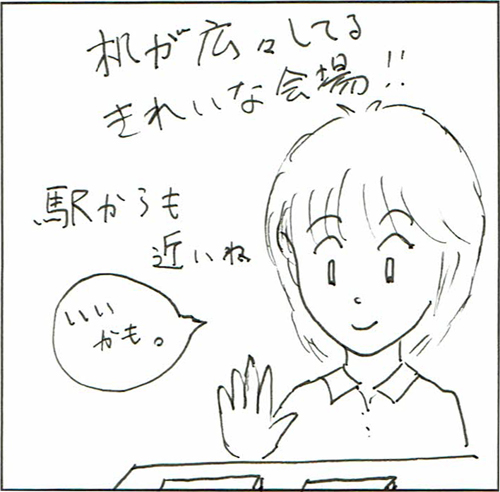 机が広々してる
きれいな会場!!
駅からも
近いね
いい
かも。